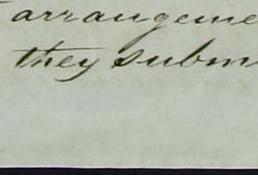 arrangeme
they subm